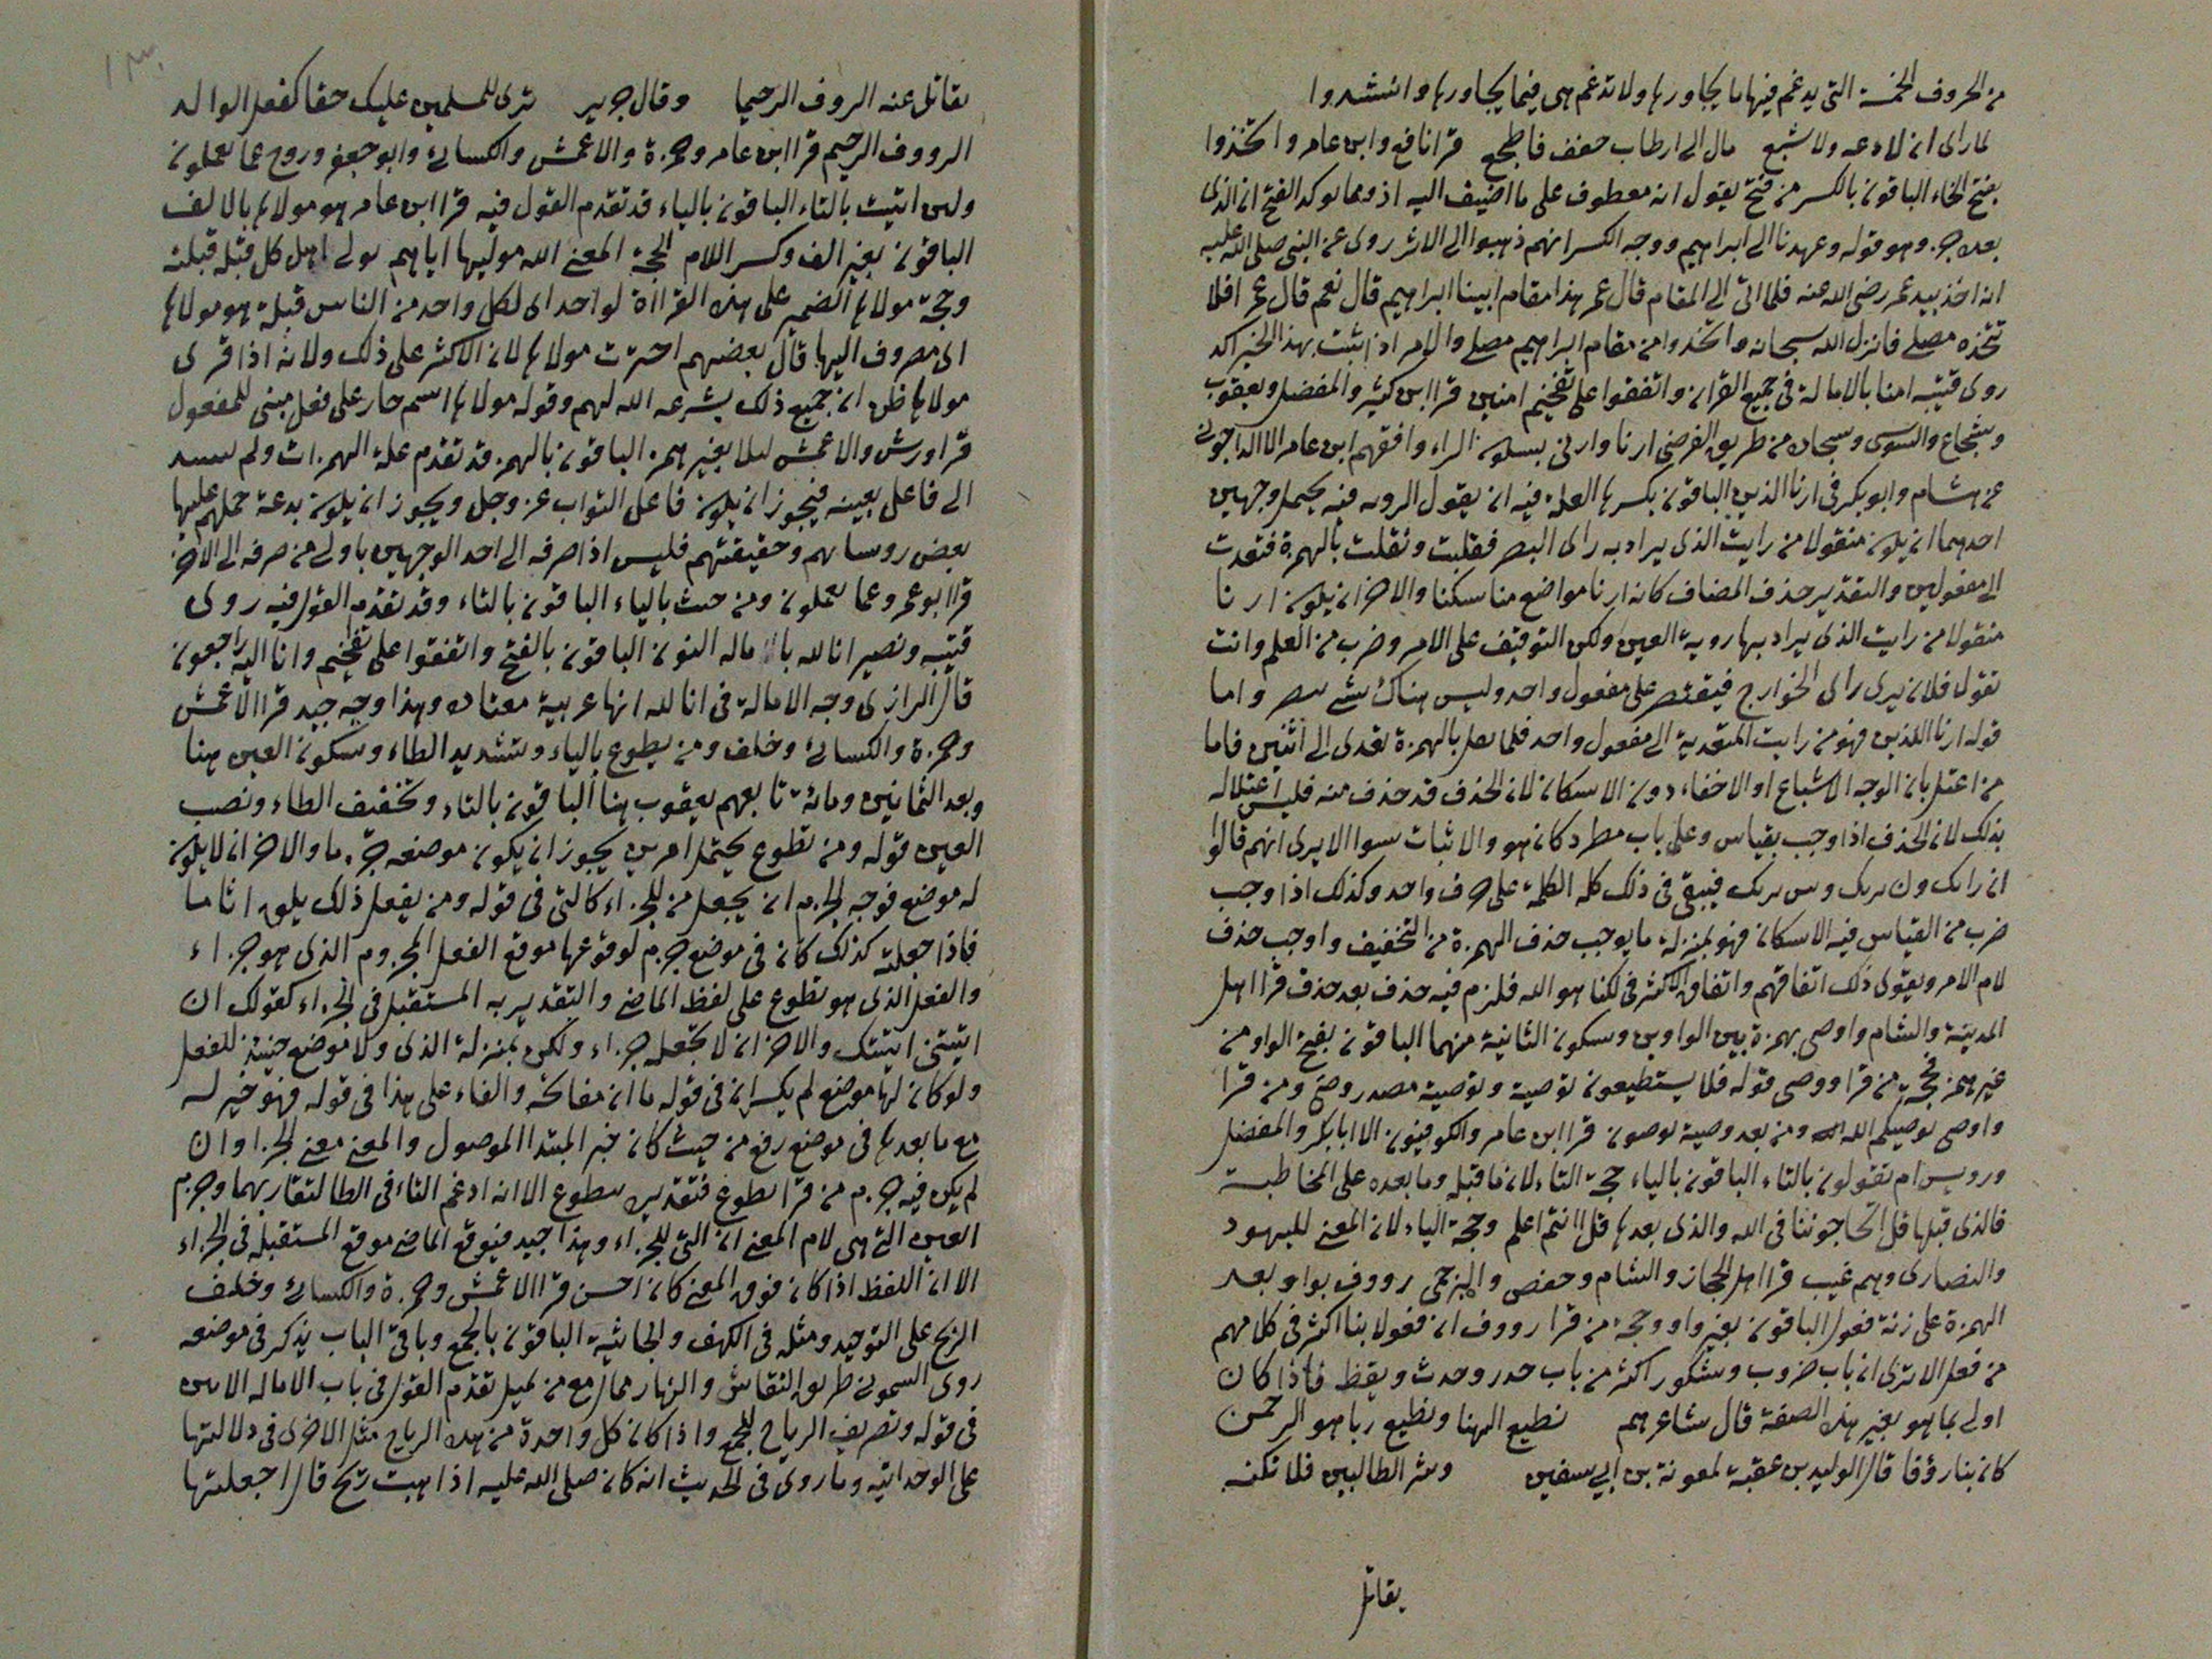 من الحروف الخمسة التي يدغم فيها ما يجاورها ولا تدغم هي فيما يجاورها وانشدوا
لما راى ان لا دعه ولا شبع مال الى ارطاب حقف فاطجع قرا نافع وابن عامر واتخذوا
بفتح الخاء الباقون بالكسر من فتح يقول انه معطوف على ما اضيف اليه اذ ومما يوكد الفتح ان الذى
بعده وهو قوله وعهدنا الى ابراهيم ووجه الكسر انهم ذهبوا الى الاثر روى عن النبى صلى الله عليه
انه اخذ بيد عمر رضى الله عنه فلما اتى الى المقام قال عمر هذا مقام ابينا ابراهيم قال نعم قال عمر افلا
تتخذه مصلى فانزل الله سبحانه واتخذوا من مقام ابراهيم مصلى والامر اذا ثبت بهذا الخبر اكد
روى قتيبه امنا بالامالة فى جميع القران واتفقوا على تفخيم امنين قرا ابن كثير والمفضل ويعقوب
وشجاع والسوسى من طريق الفرضى ارنا وارنى بسكون الراء وافقهم ابن عامر الا الداجونى
عن هشام وابو بكر فى ارنا الذين الباقون بكسرها العلة فيه ان يقول الرويه فيه يحتمل وجهين
احدهما ان يكون منقولا من رايت الذى يراد به راى البصر فقلبت ونقلت بالهمزة فتعدت
الى مفعولين والتقدير حذف المضاف كانه ارنا مواضع مناسكنا والاخر ان يكون ارنا
منقولا من رايت الذى يراد بها روية العين ولكن التوقيف على الامر وضرب من العلم وانت
تقول فلان يرى راى الخوارج فيقتصر على مفعول واحد وليس هناك شئ يبصر واما
قوله ارنا اللذين فهو من رايت المتعدية الى مفعول واحد فلما نقل بالهمزة تعدى الى اثنين فاما
من اعتل بان الوجه الاشباع او الاخفاء دون الاسكان لان الحذف قد حذف منه فليس اعتلاله
بذلك لان الحذف اذا وجب بقياس وعلى باب مطرد كان هو والاثبات سوا الا يرى انهم قالوا
فيبقى فى ذلك كله الكلمة على حرف واحد وكذلك اذا وجب
ضرب من القياس فيه الاسكان فهو بمنزلة ما يوجب حذف الهمزة من التخفيف واوجب حذف
لام الامر ويقوى ذلك اتفاقهم واتفاق الاكثر فى لكنا هو الله فلزم فيه حذف بعد حذف قرا اهل
المدينة والشام واوصى بهمزة بين الواوين وسكون الثانية منهما الباقون بفتح الواو من
غير همز فحجة من قرا ووصى قوله فلا يستطيعون توصية وتوصية مصدر وصى ومن قرا
واوصى يوصيكم الله ومن بعد وصية توصون قرا ابن عامر والكوفيون الا ابا بكر والمفضل
ورويس ام تقولون بالتاء الباقون بالياء حجة التاء لان ما قبله وما بعده على المخاطبة
فالذى قبلها قل اتحاجوننا فى الله والذى بعدها قل اانتم اعلم وحجة الياء لان المعنى لليهود
والنصارى وهم غيب قرا اهل الحجاز والشام وحفص والبرجمى رووف بواو بعد
الهمزة على زنة فعول الباقون بغير واو وحجة من قرا رووف ان فعولا بنا اكثر فى كلامهم
من فعل الا ترى ان باب ضروب وشكور اكثر من باب حدر وحدث ويقظ فاذا كان
اولى بما هو بغير هذه الصفة قال شاعرهم نطيع الهنا ونطيع ربا هو الرحمن
كان بنا رؤفا قال الوليد بن عقبة لمعوية بن ابى سفين وشر الطالبين فلا تكنه
يقاتل
يقاتل عنه الروف الرحيما وقال جرير ترى للمسلمين عليك حقا كفعل الوالد
الرووف الرحيم قرا ابن عامر وحمزة والاعمش والكسائى وابو جعفر وروح عما يعملون
ولين اتيت بالتاء الباقون بالياء قد تقدم القول فيه قرا ابن عامر هو مولاها بالالف
الباقون بغير الف وكسر اللام الحجة المعنى الله موليها اياهم يولى اهل كل قبلة قبلته
وحجة مولاها الضمير على هذه القراة لواحد اى لكل واحد من الناس قبلة هو مولاها
اى مصروف اليها قال بعضهم اخترت مولاها لان الاكثر على ذلك ولانه اذا قرى
مولاها ظن ان جميع ذلك يشرعه الله لهم وقوله مولاها اسم جار على فعل مبنى للمفعول
قرا ورش والاعمش ليلا بغير همز الباقون بالهمز قد تقدم علة الهمزات ولم يسند
الى فاعل بعينه فيجوز ان يكون فاعل التواب عز وجل ويجوز ان يكون بدعة حملهم عليها
بعض روسايهم وحقيقتهم فليس اذا صرفه الى احد الوجهين باولى من صرفه الى الاخر
قرا ابو عمرو عما يعملون ومن حيث بالياء الباقون بالتاء وقد تقدم القول فيه روى
قتيبه ونصير انا لله بالاماله النون الباقون بالفتح واتفقوا على تفخيم وانا اليه راجعون
قال الرازى وجه الامالة فى انا لله انها عربية معتاده وهذا وجه جيد قرا الاعمش
وحمزة والكسائى وخلف ومن يطوع بالياء وتشديد الطاء وسكون العين هنا
وبعد الثمانين ومائة تابعهم يعقوب هنا الباقون بالتاء وتخفيف الطاء ونصب
العين قوله ومن تطوع يحتمل امرين يجوز ان يكون موضعه جزما والاخر ان لا يكون
له موضع فوجه الجزم ان يجعل من للجزاء كالتى فى قوله ومن يفعل ذلك يلق اثاما
فاذا جعلته كذلك كان فى موضع جزم لوقوعها موقع الفعل المجزوم الذى هو جزاء
والفعل الذى هو تطوع على لفظ الماضى والتقدير به المستقبل فى الجزاء كقولك ان
اتيتنى اتيتك والاخر ان لا تجعله جزاء ولكن بمنزلة الذى ولا موضع حينئذ للفعل
ولو كان لها موضع لم يكسر ان فى قوله ما ان مفاتحه والفاء على هذا فى قوله فهو خير له
مع ما بعدها فى موضع رفع من حيث كان خبر المبتدا الموصول والمعنى معنى الجزا وان
لم يكن فيه جزم من قرا يطوع فتقديره يتطوع الا انه ادغم التاء فى الطا لتقاربهما وجزم
العين التى هى لام المعنى ان التى للجزاء وهذا جيد فيوقع الماضى موقع المستقبل فى الجزاء
الا ان اللفظ اذا كان فوق المعنى كان احسن قرا الاعمش وحمزة والكسائى وخلف
الريح على التوحيد ومثله فى الكهف والجاثية الباقون بالجمع وباقى الباب يذكر فى موضعه
روى من طريق النقاش والنهار ممال تقدم القول فى باب الاماله
فى قوله وتصريف الرياح للجمع واذا كان كل واحدة من هذه الرياح مثل الاخرى فى دلالتها
على الوحدانيه وما روى فى الحديث انه كان صلى الله عليه اذا هبت ريح قال اجعلتها